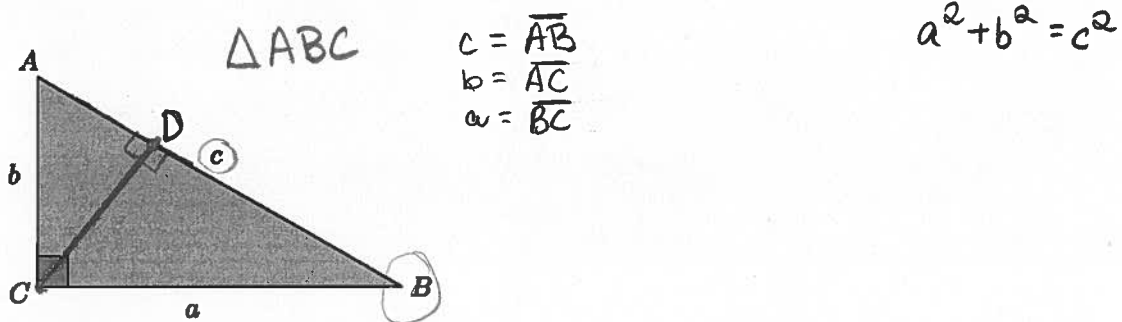 △ABC
c = AB
b = AC
a = BC
a² + b² = c²
A
D
c
b
C
a
B